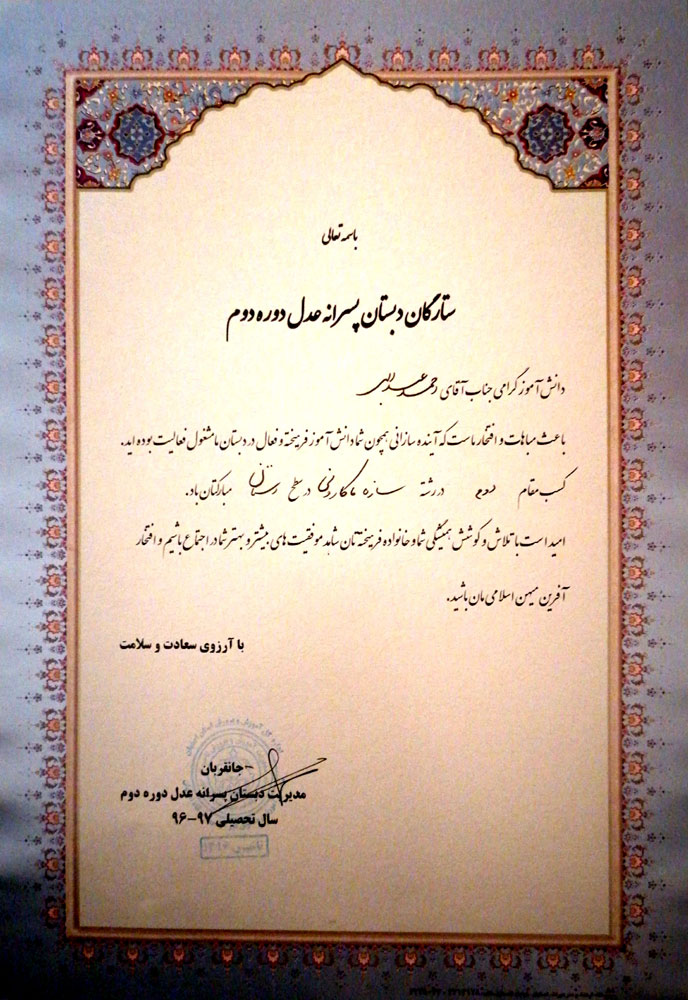 باسمه تعالی
ستارگان دبستان پسرانه عدل دوره دوم
دانش آموز گرامی جناب آقای
باعث مباهات و افتخار ماست که آینده سازانی همچون شما دانش آموز فرهیخته و فعال در دبستان ما مشغول فعالیت بوده اید.
کسب مقام دوم در رشته سازه ماکارونی در سطح مبارکتان باد.
امید است با تلاش و کوشش همیشگی شما و خانواده فرهیخته تان شاهد موفقیت های بیشتر و بهتر شما در اجتماع باشیم و افتخار
آفرین میهن اسلامی مان باشید.
با آرزوی سعادت و سلامت
جانقربان
مدیریت دبستان پسرانه عدل دوره دوم
سال تحصیلی ۹۷-۹۶